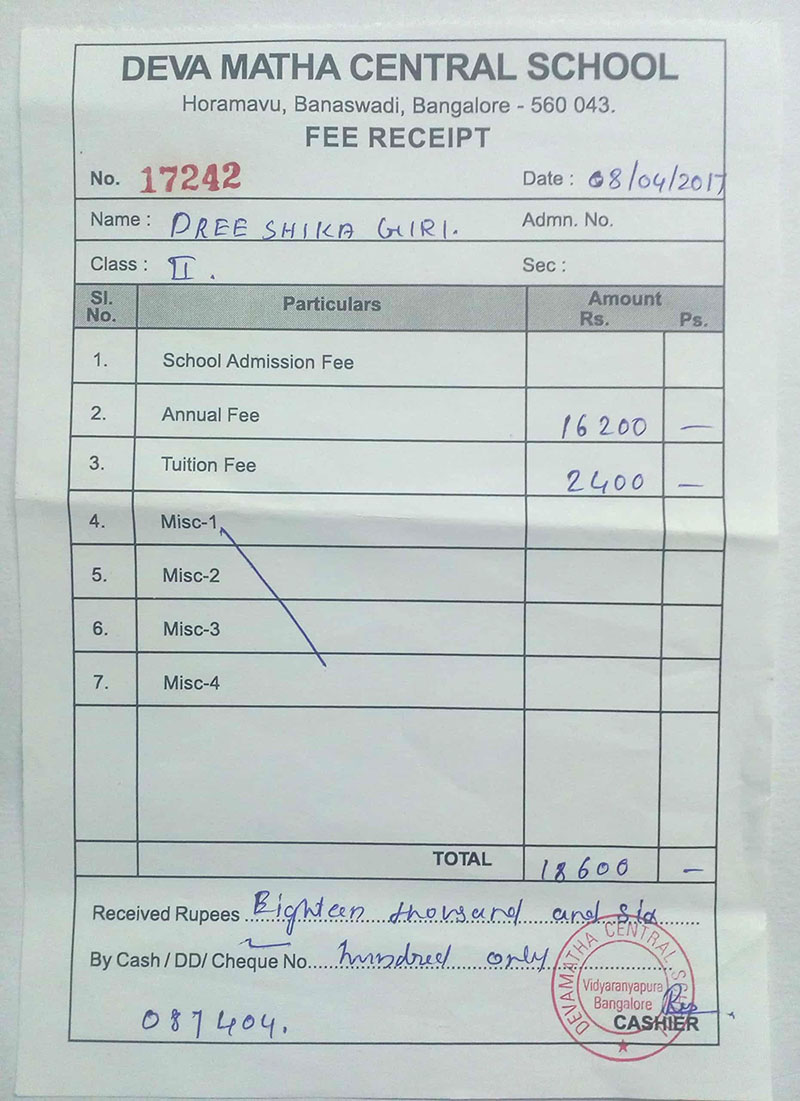 DEVA MATHA CENTRAL SCHOOL
Horamavu, Banaswadi, Bangalore - 560 043.
FEE RECEIPT
No. 17242 Date : 08/04/2017
Name : DREESHIKA GIRI. Admn. No.
Class : II. Sec :
Sl. No. Particulars Amount Rs. Ps.
1. School Admission Fee
2. Annual Fee 16200 —
3. Tuition Fee 2400 —
4. Misc-1
5. Misc-2
6. Misc-3
7. Misc-4
TOTAL 18600 —
Received Rupees Eighteen thousand and six
By Cash / DD/ Cheque No. hundred only
087404.
DEVAMATHA CENTRAL
Vidyaranyapura
Bangalore
CASHIER